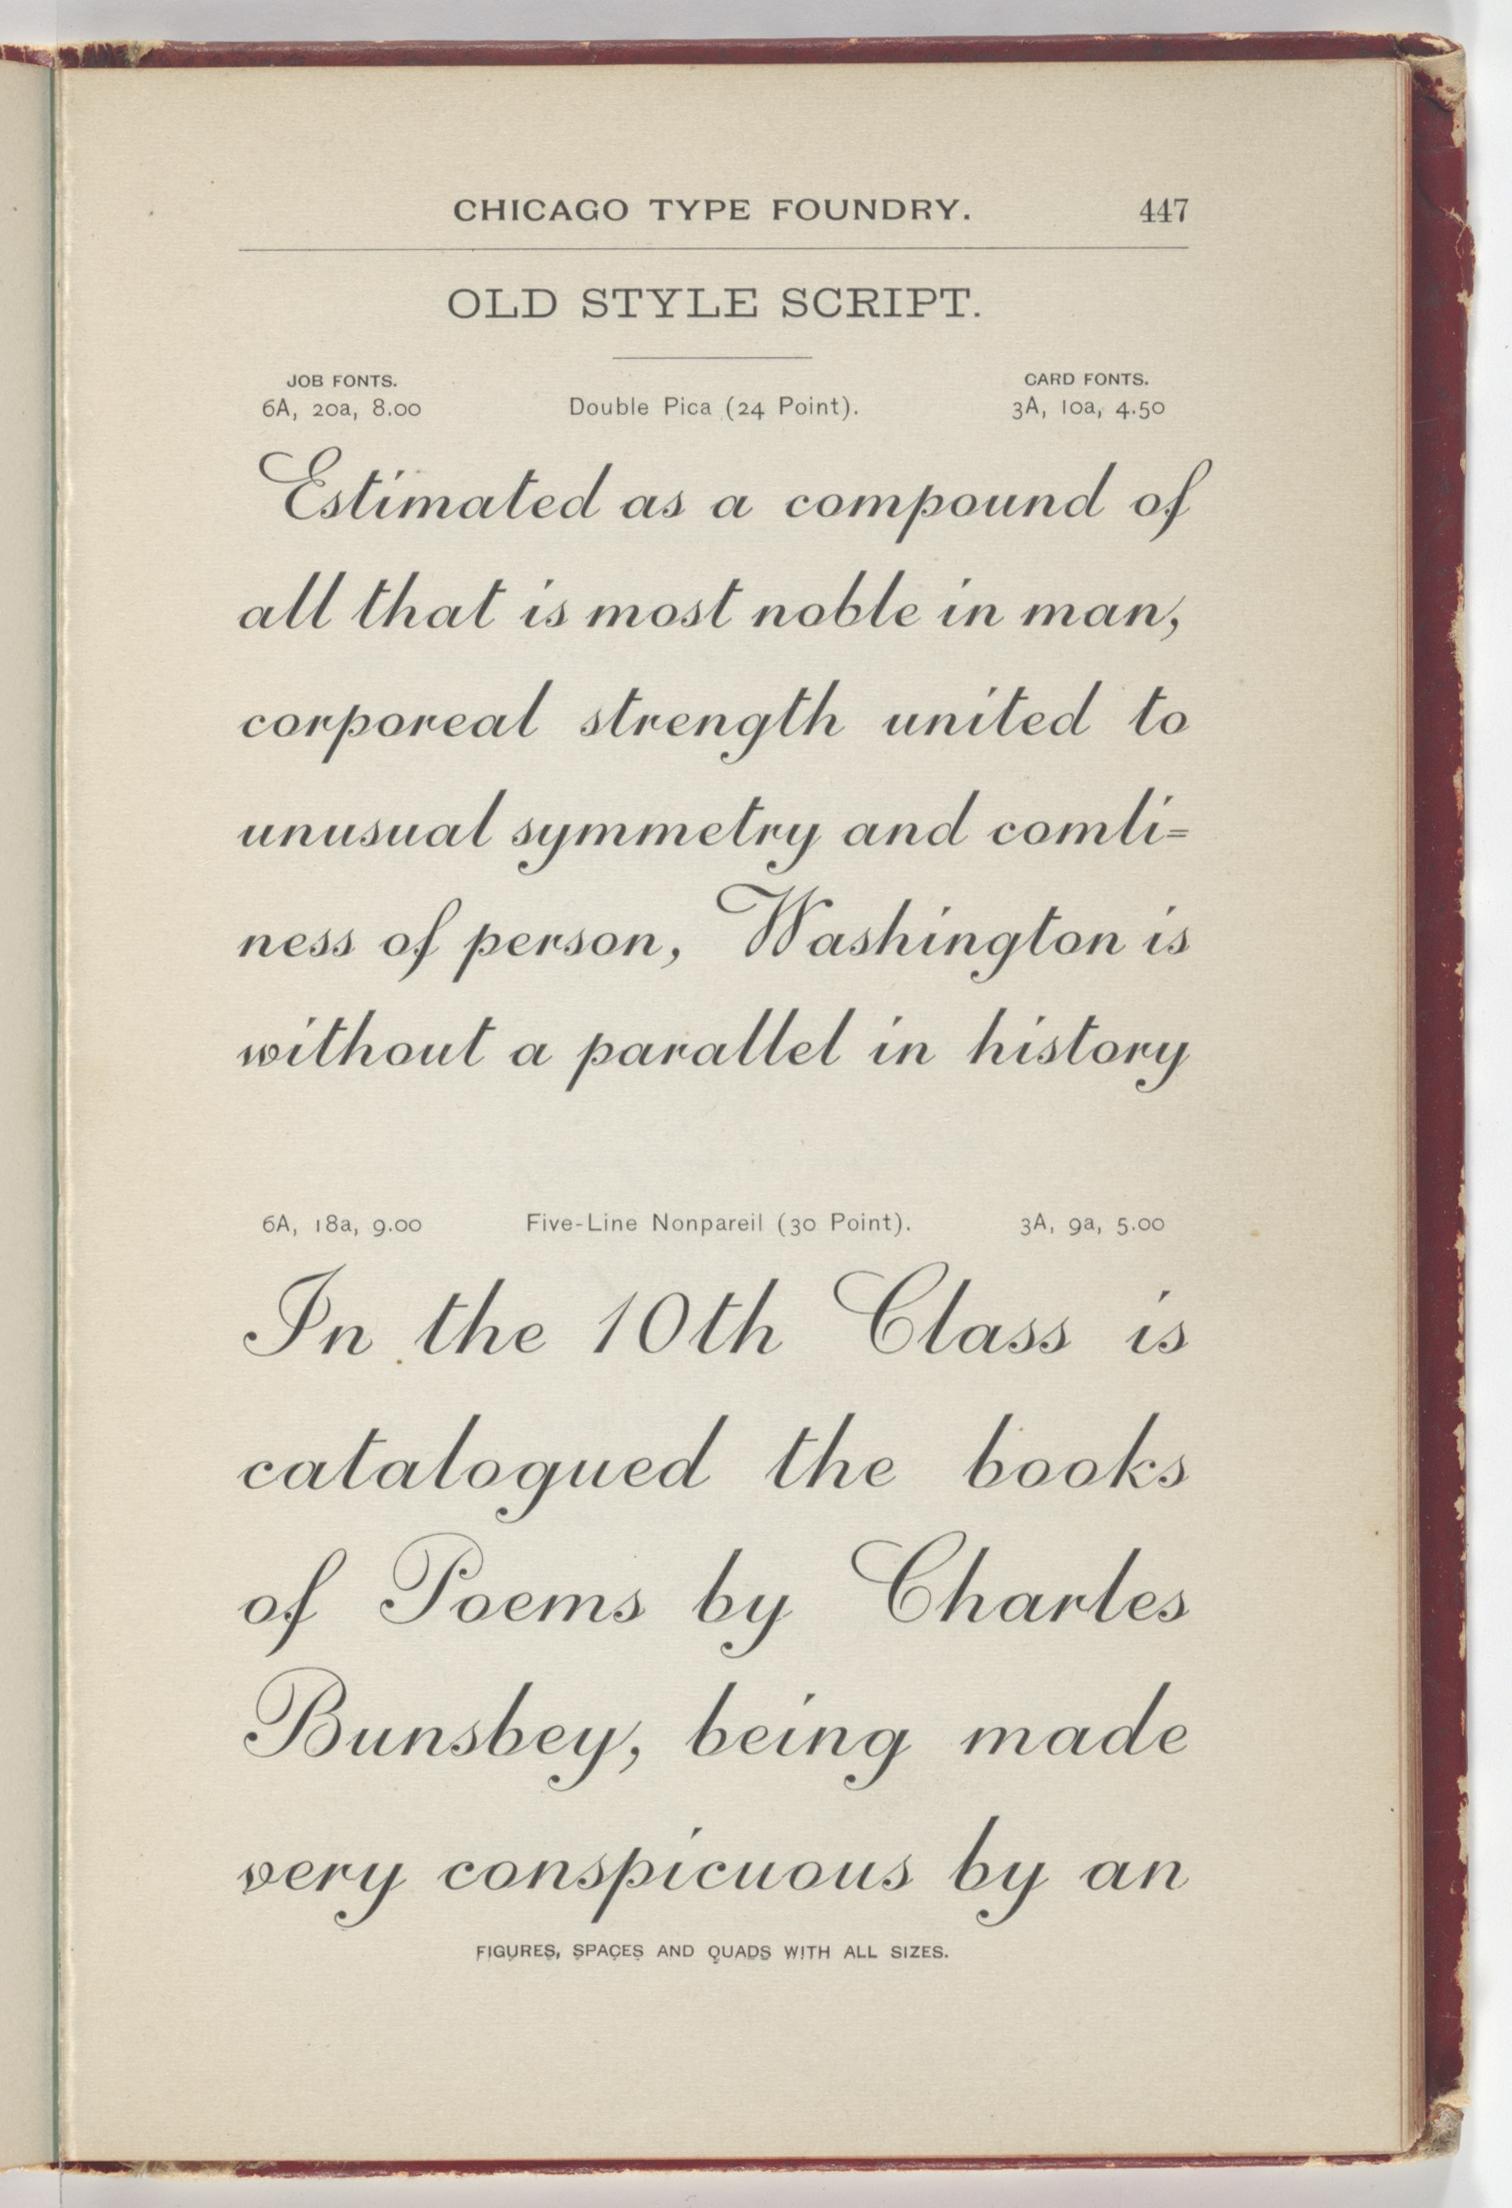 CHICAGO TYPE FOUNDRY. 447
OLD STYLE SCRIPT.
JOB FONTS. CARD FONTS.
6A, 20a, 8.00 Double Pica (24 Point). 3A, 10a, 4.50
Estimated as a compound of
all that is most noble in man,
corporeal strength united to
unusual symmetry and comli=
ness of person, Washington is
without a parallel in history
6A, 18a, 9.00 Five-Line Nonpareil (30 Point). 3A, 9a, 5.00
In the 10th Class is
catalogued the books
of Poems by Charles
Bunsbey, being made
very conspicuous by an
FIGURES, SPACES AND QUADS WITH ALL SIZES.